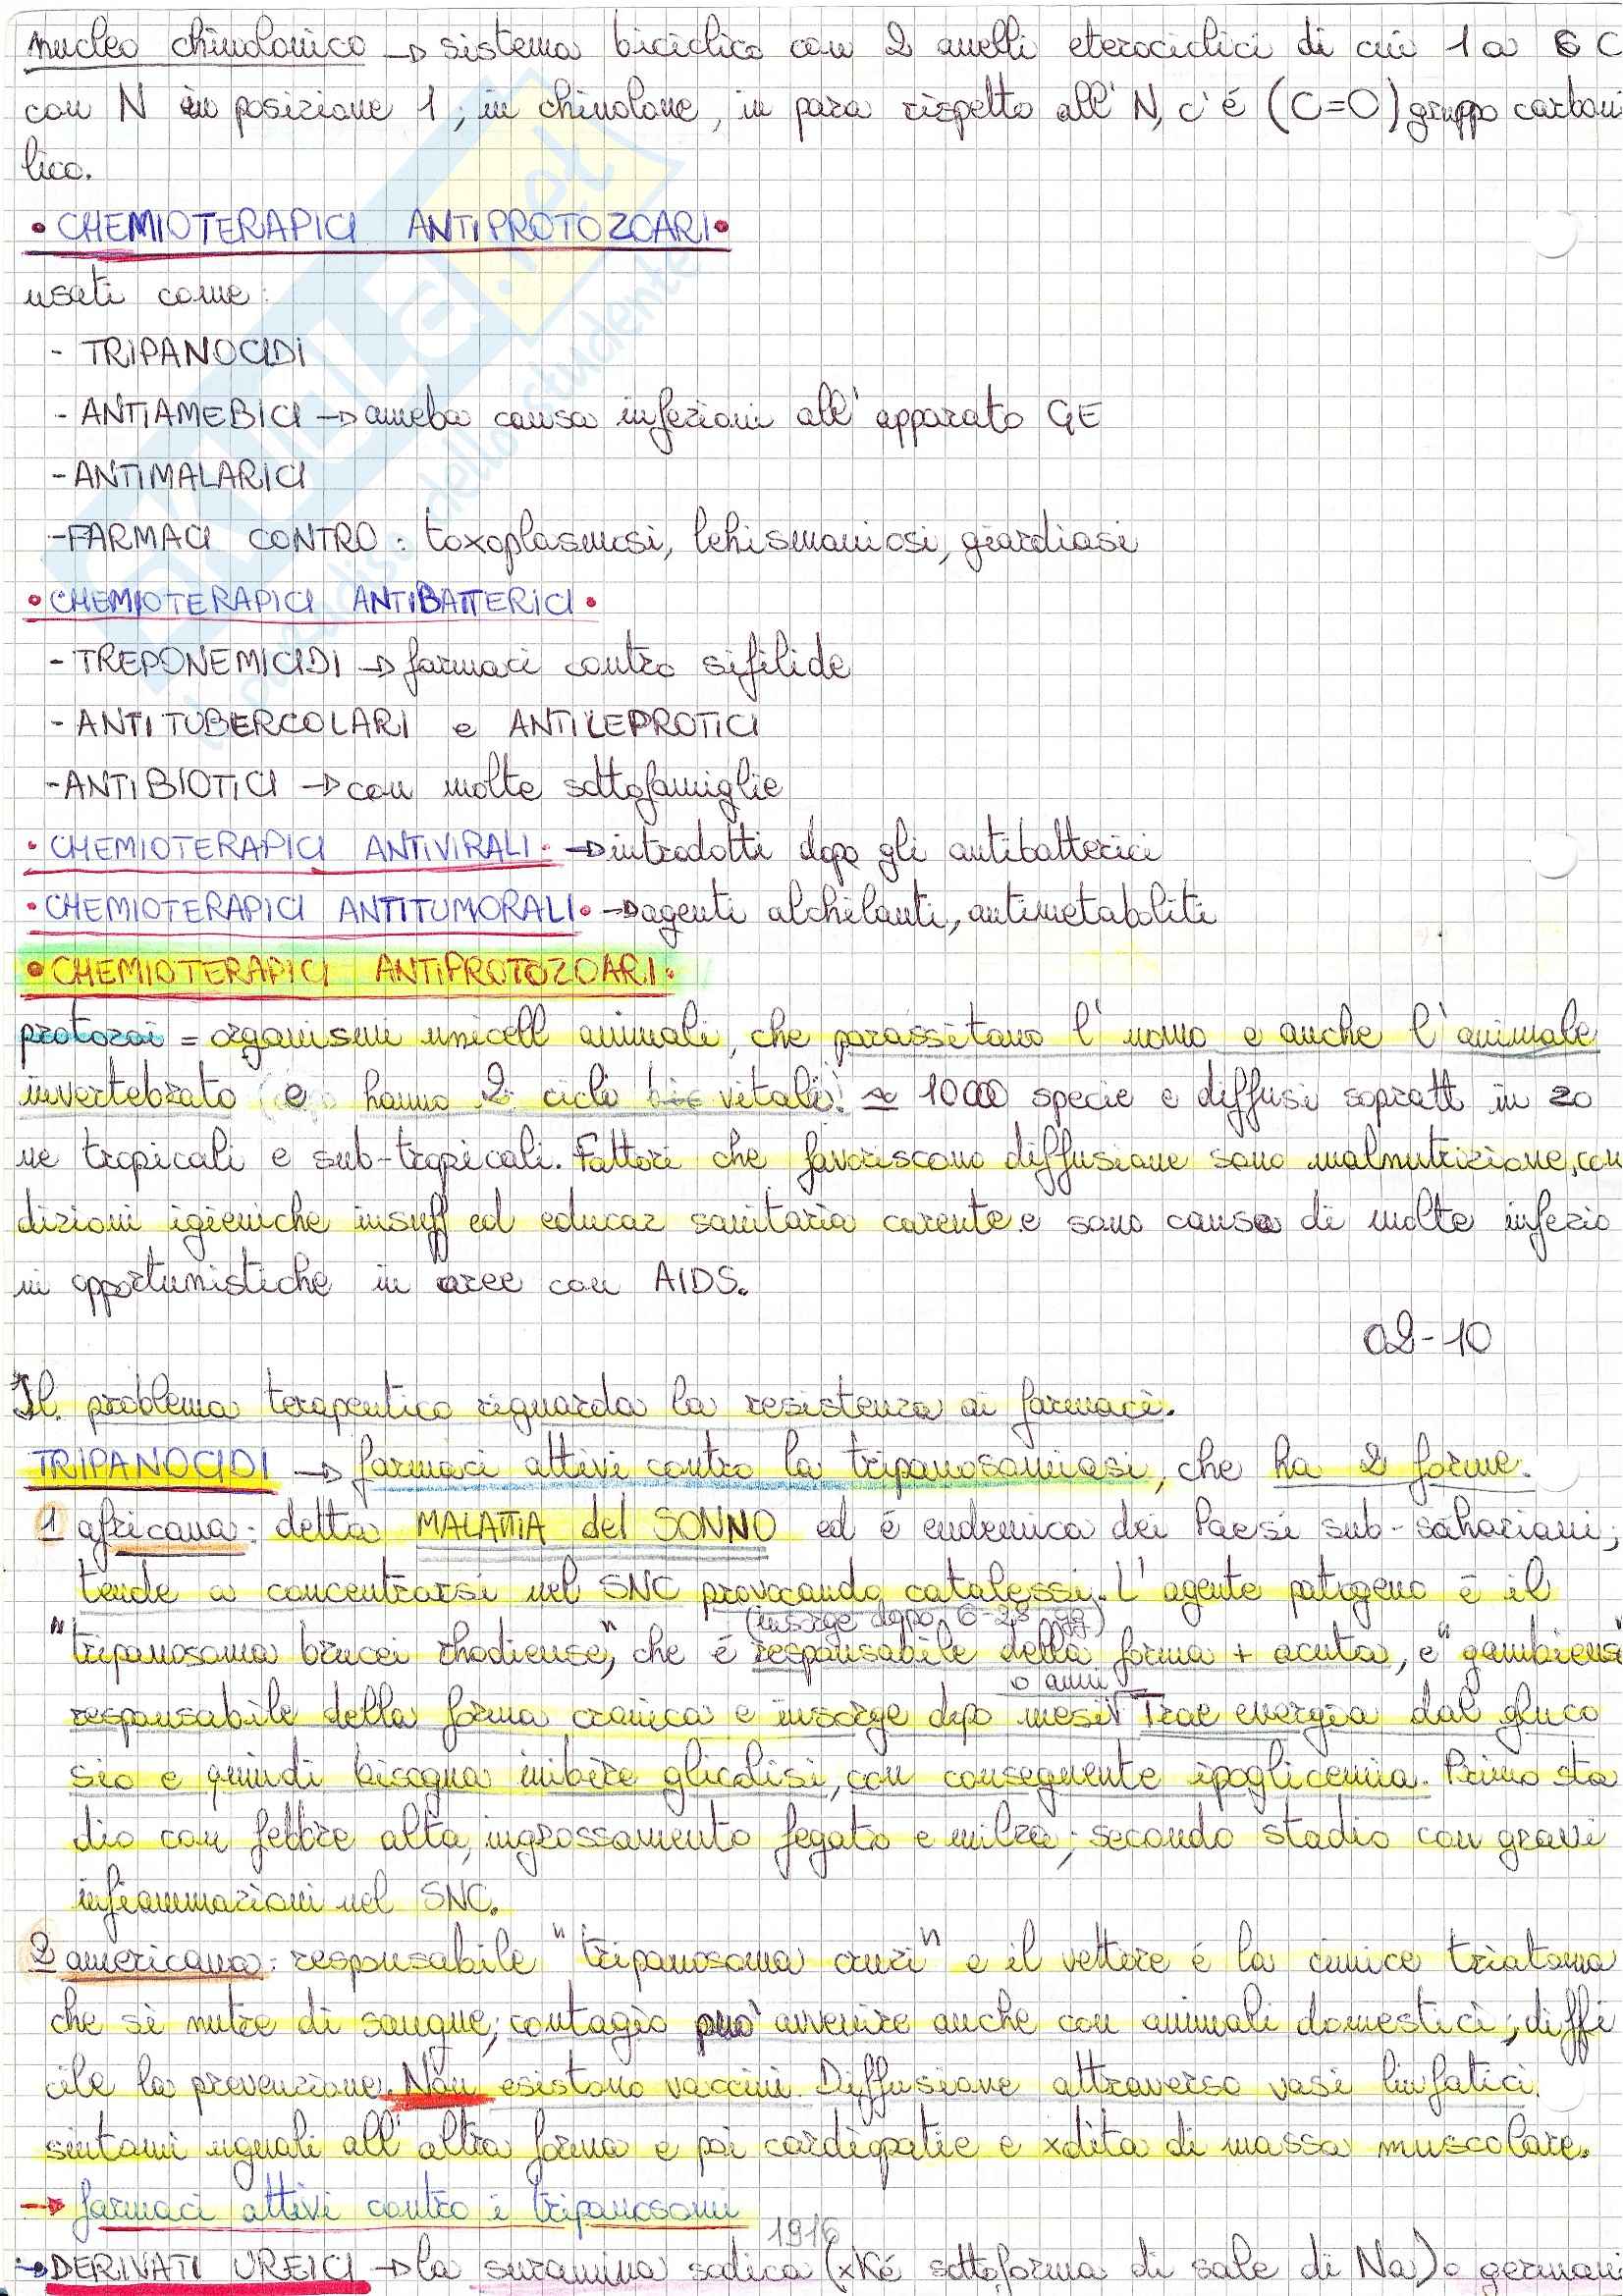 nucleo chinolonico → sistema biciclico con 2 anelli eterociclici di cui 1 a 6 C
con N in posizione 1; in chinolone, in para rispetto all' N, c'é (C=O) gruppo carboni
lico.
• CHEMIOTERAPICI ANTIPROTOZOARI •
usati come:
- TRIPANOCIDI
- ANTIAMEBICI → ameba causa infezioni all' apparato GE
- ANTIMALARICI
- FARMACI CONTRO: toxoplasmosi, lehismaniosi, giardiasi
• CHEMIOTERAPICI ANTIBATTERICI •
- TREPONEMICIDI → farmaci contro sifilide
- ANTITUBERCOLARI e ANTILEPROTICI
- ANTIBIOTICI → con molte sottofamiglie
• CHEMIOTERAPICI ANTIVIRALI • → introdotti dopo gli antibatterici
• CHEMIOTERAPICI ANTITUMORALI • → agenti alchilanti, antimetaboliti
• CHEMIOTERAPICI ANTIPROTOZOARI •
protozoi = organismi unicell animali, che parassitano l' uomo e anche l' animale
invertebrato (e hanno 2 cicli vitali). ≃ 10000 specie e diffusi sopratt in zo
ne tropicali e sub-tropicali. Fattori che favoriscono diffusione sono malnutrizione, con
dizioni igieniche insuff ed educaz sanitaria carente e sono causa di molte infezio
ni opportunistiche in aree con AIDS.
02-10
Il problema terapeutico riguarda la resistenza ai farmaci.
TRIPANOCIDI → farmaci attivi contro la tripanosomiasi, che ha 2 forme:
1 africana: detta MALATTIA del SONNO ed é endemica dei Paesi sub-sahariani;
tende a concentrarsi nel SNC provocando catalessi. L' agente patogeno é il
(insorge dopo 6-28 gg)
"tripanosoma brucei rhodiense", che é responsabile della forma + acuta, e "gambiense"
o anni
responsabile della forma cronica e insorge dopo mesi. Trae energia dal gluco
sio e quindi bisogna inibire glicolisi, con conseguente ipoglicemia. Primo sta
dio con febbre alta, ingrossamento fegato e milza; secondo stadio con gravi
infiammazioni nel SNC.
2 americana: responsabile "tripanosoma cruzi" e il vettore é la cimice triatoma
che si nutre di sangue; contagio può avvenire anche con animali domestici; diffi
cile la prevenzione. Non esistono vaccini. Diffusione attraverso vasi linfatici.
sintomi uguali all' altra forma e poi cardiopatie e xdita di massa muscolare.
→ farmaci attivi contro i tripanosomi
1916
→ DERIVATI UREICI → la suramina sodica (xké sottoforma di sale di Na) o germani